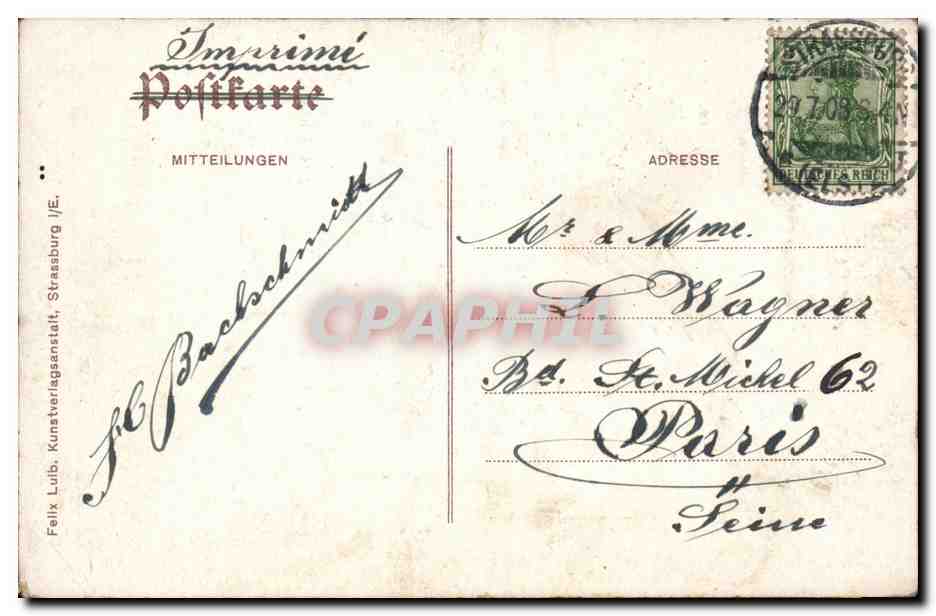 Imprimé
Postkarte
MITTEILUNGEN
ADRESSE
STRASSBURG
29.7.08.6-7N
(ELS)
DEUTSCHES REICH
Mr & Mme.
L. Wagner
Bd. St. Michel 62
Paris
Seine
Bachschmidt
Felix Luib. Kunstverlagsanstalt, Strassburg I/E.
CPAPHIL